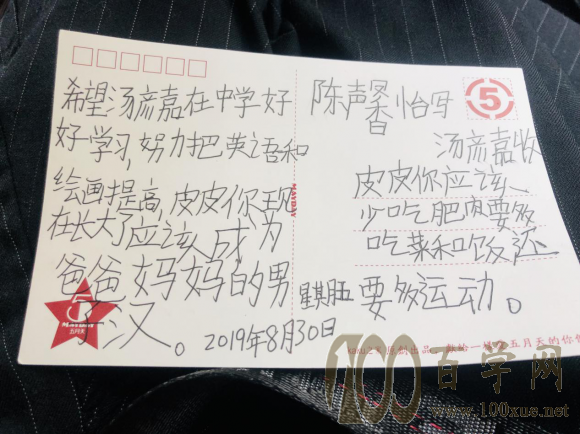 希望汤彦嘉在中学好
好学习,努力把英语和
绘画提高,皮皮你现
在长大了应该成为
爸爸妈妈的男
子汉。2019年8月30日
星期五
陈声馨怡写
汤彦嘉收
皮皮你应该、
少吃肥肉要多
吃菜和吃饭还
要多运动。
5
MAYDAY
5
MAYDAY
五月天
五月天的你
100百学网
www.100xue.net